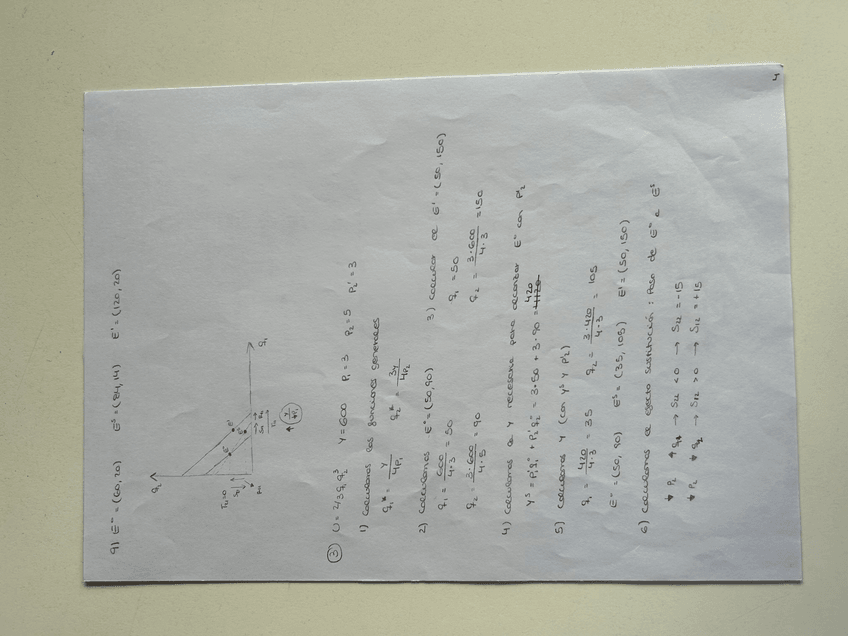 9) E⁰ = (60, 20) Eˢ = (84, 14) E' = (120, 20)
q₂
q₁
E'
E⁰
Eˢ
TE₂ = 0
③ U = 2/3 q₁ q₂³ Y = 600 P₁ = 3 P₂ = 5 P₂' = 3
1) Calculamos las funciones generales
q₁* = Y / 4P₁ q₂* = 3Y / 4P₂
2) Calculamos E⁰ = (50, 90)
q₁ = 600 / 4·3 = 50
q₂ = 3·600 / 4·5 = 90
3) Calcular de E' = (50, 150)
q₁ = 50
q₂ = 3·600 / 4·3 = 150
4) Calculamos la Y necesaria para alcanzar E⁰ con P₂'
Yˢ = P₁q₁⁰ + P₂'q₂⁰ = 3·50 + 3·90 = 420
5) Calculamos Y (con Yˢ y P₂')
q₁ = 420 / 4·3 = 35 q₂ = 3·420 / 4·3 = 105
E⁰ = (50, 90) Eˢ = (35, 105) E' = (50, 150)
6) Calculamos el efecto sustitución: Paso de E⁰ a Eˢ
↓ P₂ ↓ q₁ → S₂₂ < 0 → S₂₂ = -15
↓ P₂ ↑ q₂ → S₁₂ > 0 → S₁₂ = +15
4